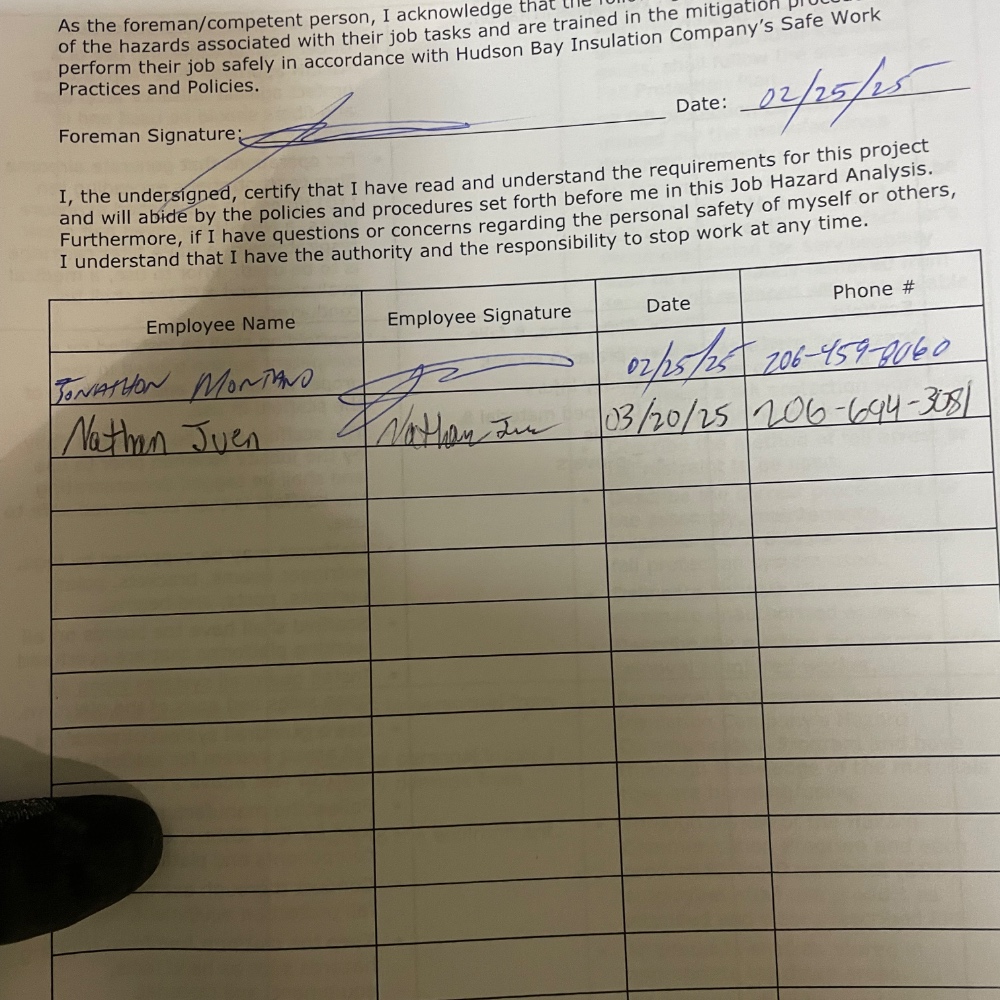 As the foreman/competent person, I acknowledge that the
of the hazards associated with their job tasks and are trained in the mitigation
perform their job safely in accordance with Hudson Bay Insulation Company's Safe Work
Practices and Policies.
Foreman Signature: Date: 02/25/25
I, the undersigned, certify that I have read and understand the requirements for this project
and will abide by the policies and procedures set forth before me in this Job Hazard Analysis.
Furthermore, if I have questions or concerns regarding the personal safety of myself or others,
I understand that I have the authority and the responsibility to stop work at any time.
Employee Name Employee Signature Date Phone #
JONATHON MONTANO 02/25/25 206-459-8060
Nathan Juen Nathan 03/20/25 206-694-3081